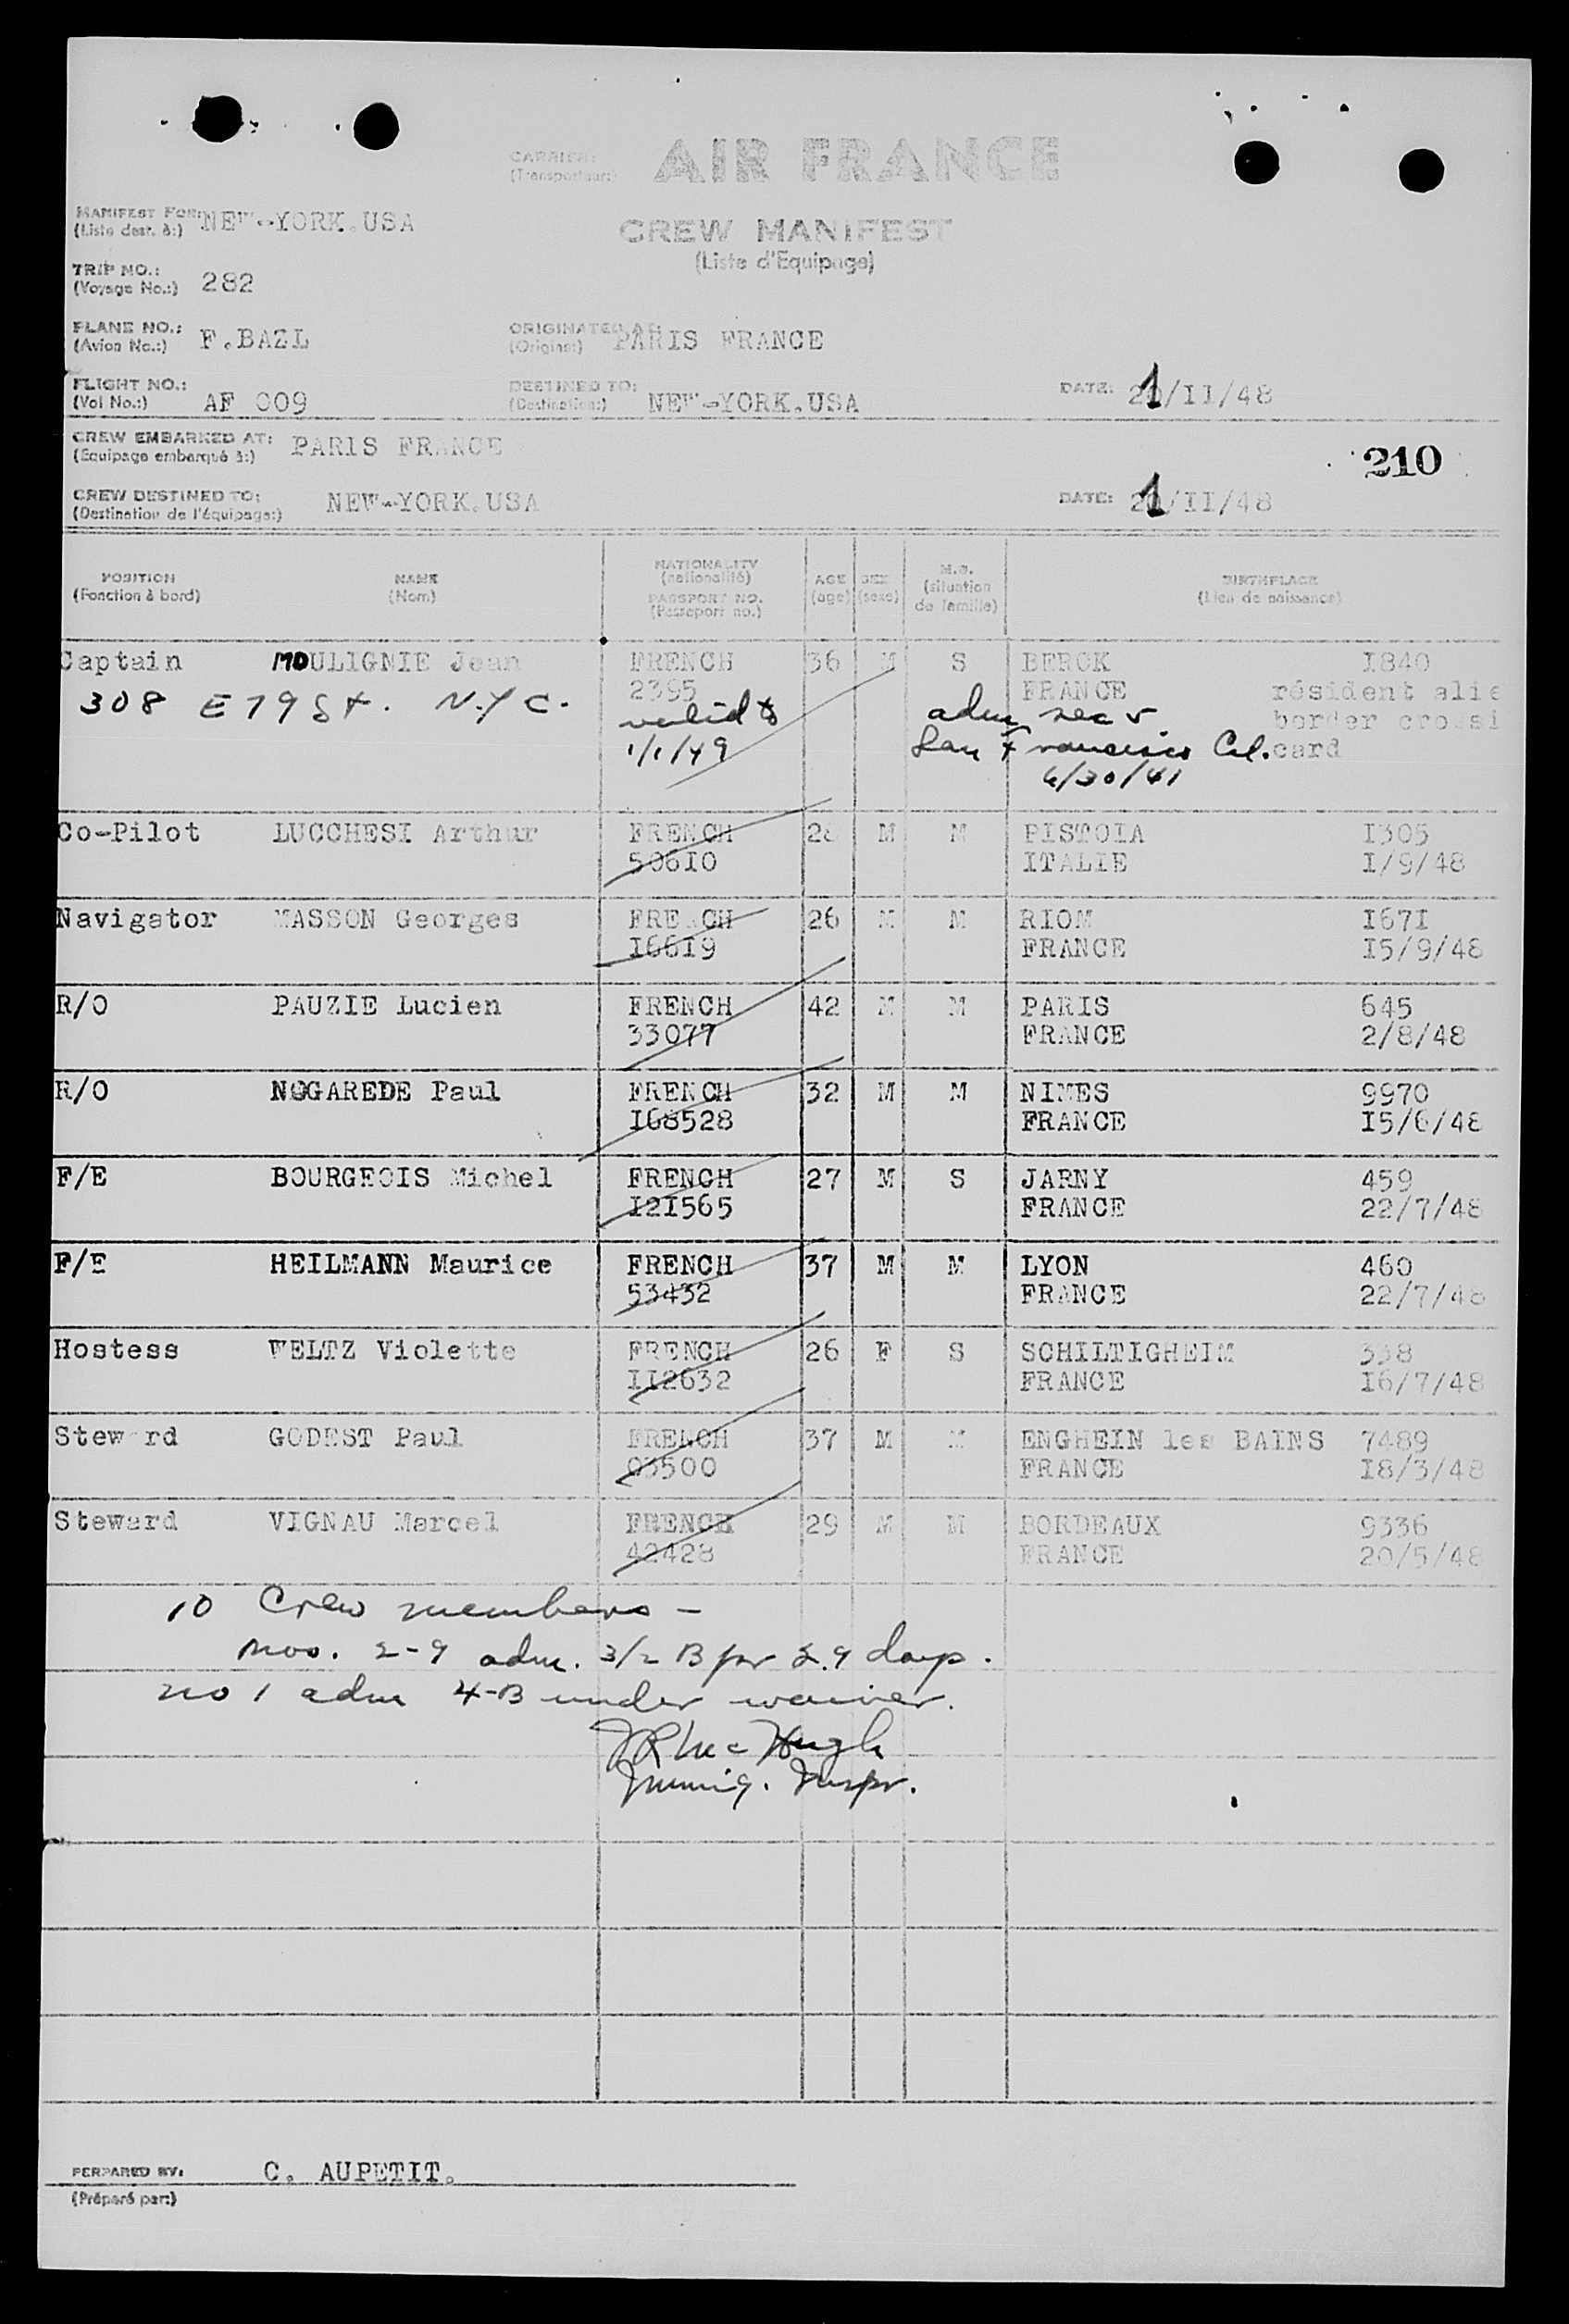 CARRIER: AIR FRANCE
(Transporteur:)
MANIFEST FOR: NEW-YORK.USA
(Liste dest. à:)
CREW MANIFEST
(Liste d'Equipage)
TRIP NO.: 282
(Voyage No.:)
PLANE NO.: F.BAZL
(Avion No.:)
ORIGINATED AT: PARIS FRANCE
(Origine:)
FLIGHT NO.: AF 009
(Vol No.:)
DESTINED TO: NEW-YORK.USA
(Destination:)
DATE: 21/II/48
CREW EMBARKED AT: PARIS FRANCE
(Equipage embarqué à:)
210
CREW DESTINED TO: NEW-YORK.USA
(Destination de l'équipage:)
DATE: 21/II/48
POSITION
(Fonction à bord)
NAME
(Nom)
NATIONALITY
(nationalité)
PASSPORT NO.
(Passeport no.)
AGE
(âge)
SEX
(sexe)
M.S.
(situation
de famille)
BIRTHPLACE
(Lieu de naissance)
Captain MOULIGNIE Jean FRENCH 36 M S BERCK I840
2395 FRANCE résident alie
308 E 79 St. N.Y C. valid to adm sea border crossi
1/1/49 San Francisco Cal. card
6/30/41
Co-Pilot LUCCHESI Arthur FRENCH 28 M M PISTOIA I305
50610 ITALIE I/9/48
Navigator MASSON Georges FRENCH 26 M M RIOM I67I
I66I9 FRANCE I5/9/48
R/O PAUZIE Lucien FRENCH 42 M M PARIS 645
33077 FRANCE 2/8/48
R/O NOGAREDE Paul FRENCH 32 M M NIMES 9970
I68528 FRANCE I5/6/48
F/E BOURGEOIS Michel FRENCH 27 M S JARNY 459
I2I565 FRANCE 22/7/48
F/E HEILMANN Maurice FRENCH 37 M M LYON 460
53432 FRANCE 22/7/48
Hostess WELTZ Violette FRENCH 26 F S SCHILTIGHEIM 338
II2632 FRANCE I6/7/48
Steward GODEST Paul FRENCH 37 M M ENGHEIN les BAINS 7489
03500 FRANCE I8/3/48
Steward VIGNAU Marcel FRENCH 29 M M BORDEAUX 9336
42428 FRANCE 20/5/48
10 Crew members -
Nos. 2-9 adm. 3/2 B for 29 days.
no 1 adm 4-B under waiver.
JR McHugh
Immig. Inspr.
PERPARED BY: C. AUPETIT.
(Préparé par:)